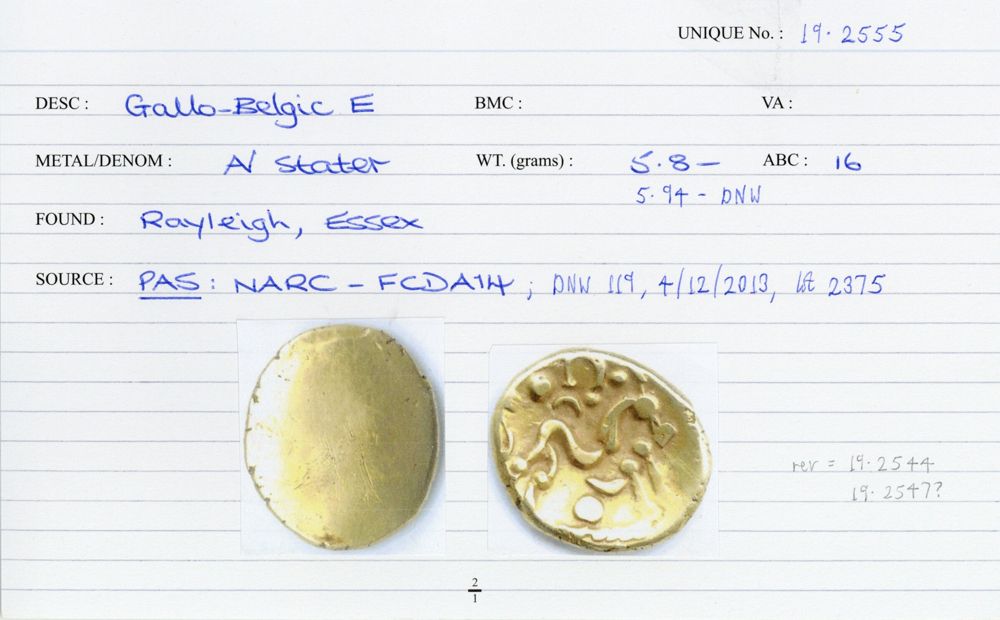 UNIQUE No. : 19.2555
DESC : Gallo-Belgic E BMC : VA :
METAL/DENOM : A/ Stater WT. (grams) : 5.8- ABC : 16
5.94 - DNW
FOUND : Rayleigh, Essex
SOURCE : PAS: NARC - FCDA14; DNW 119, 4/12/2013, lot 2375
rev = 19.2544
19.2547?
2
1